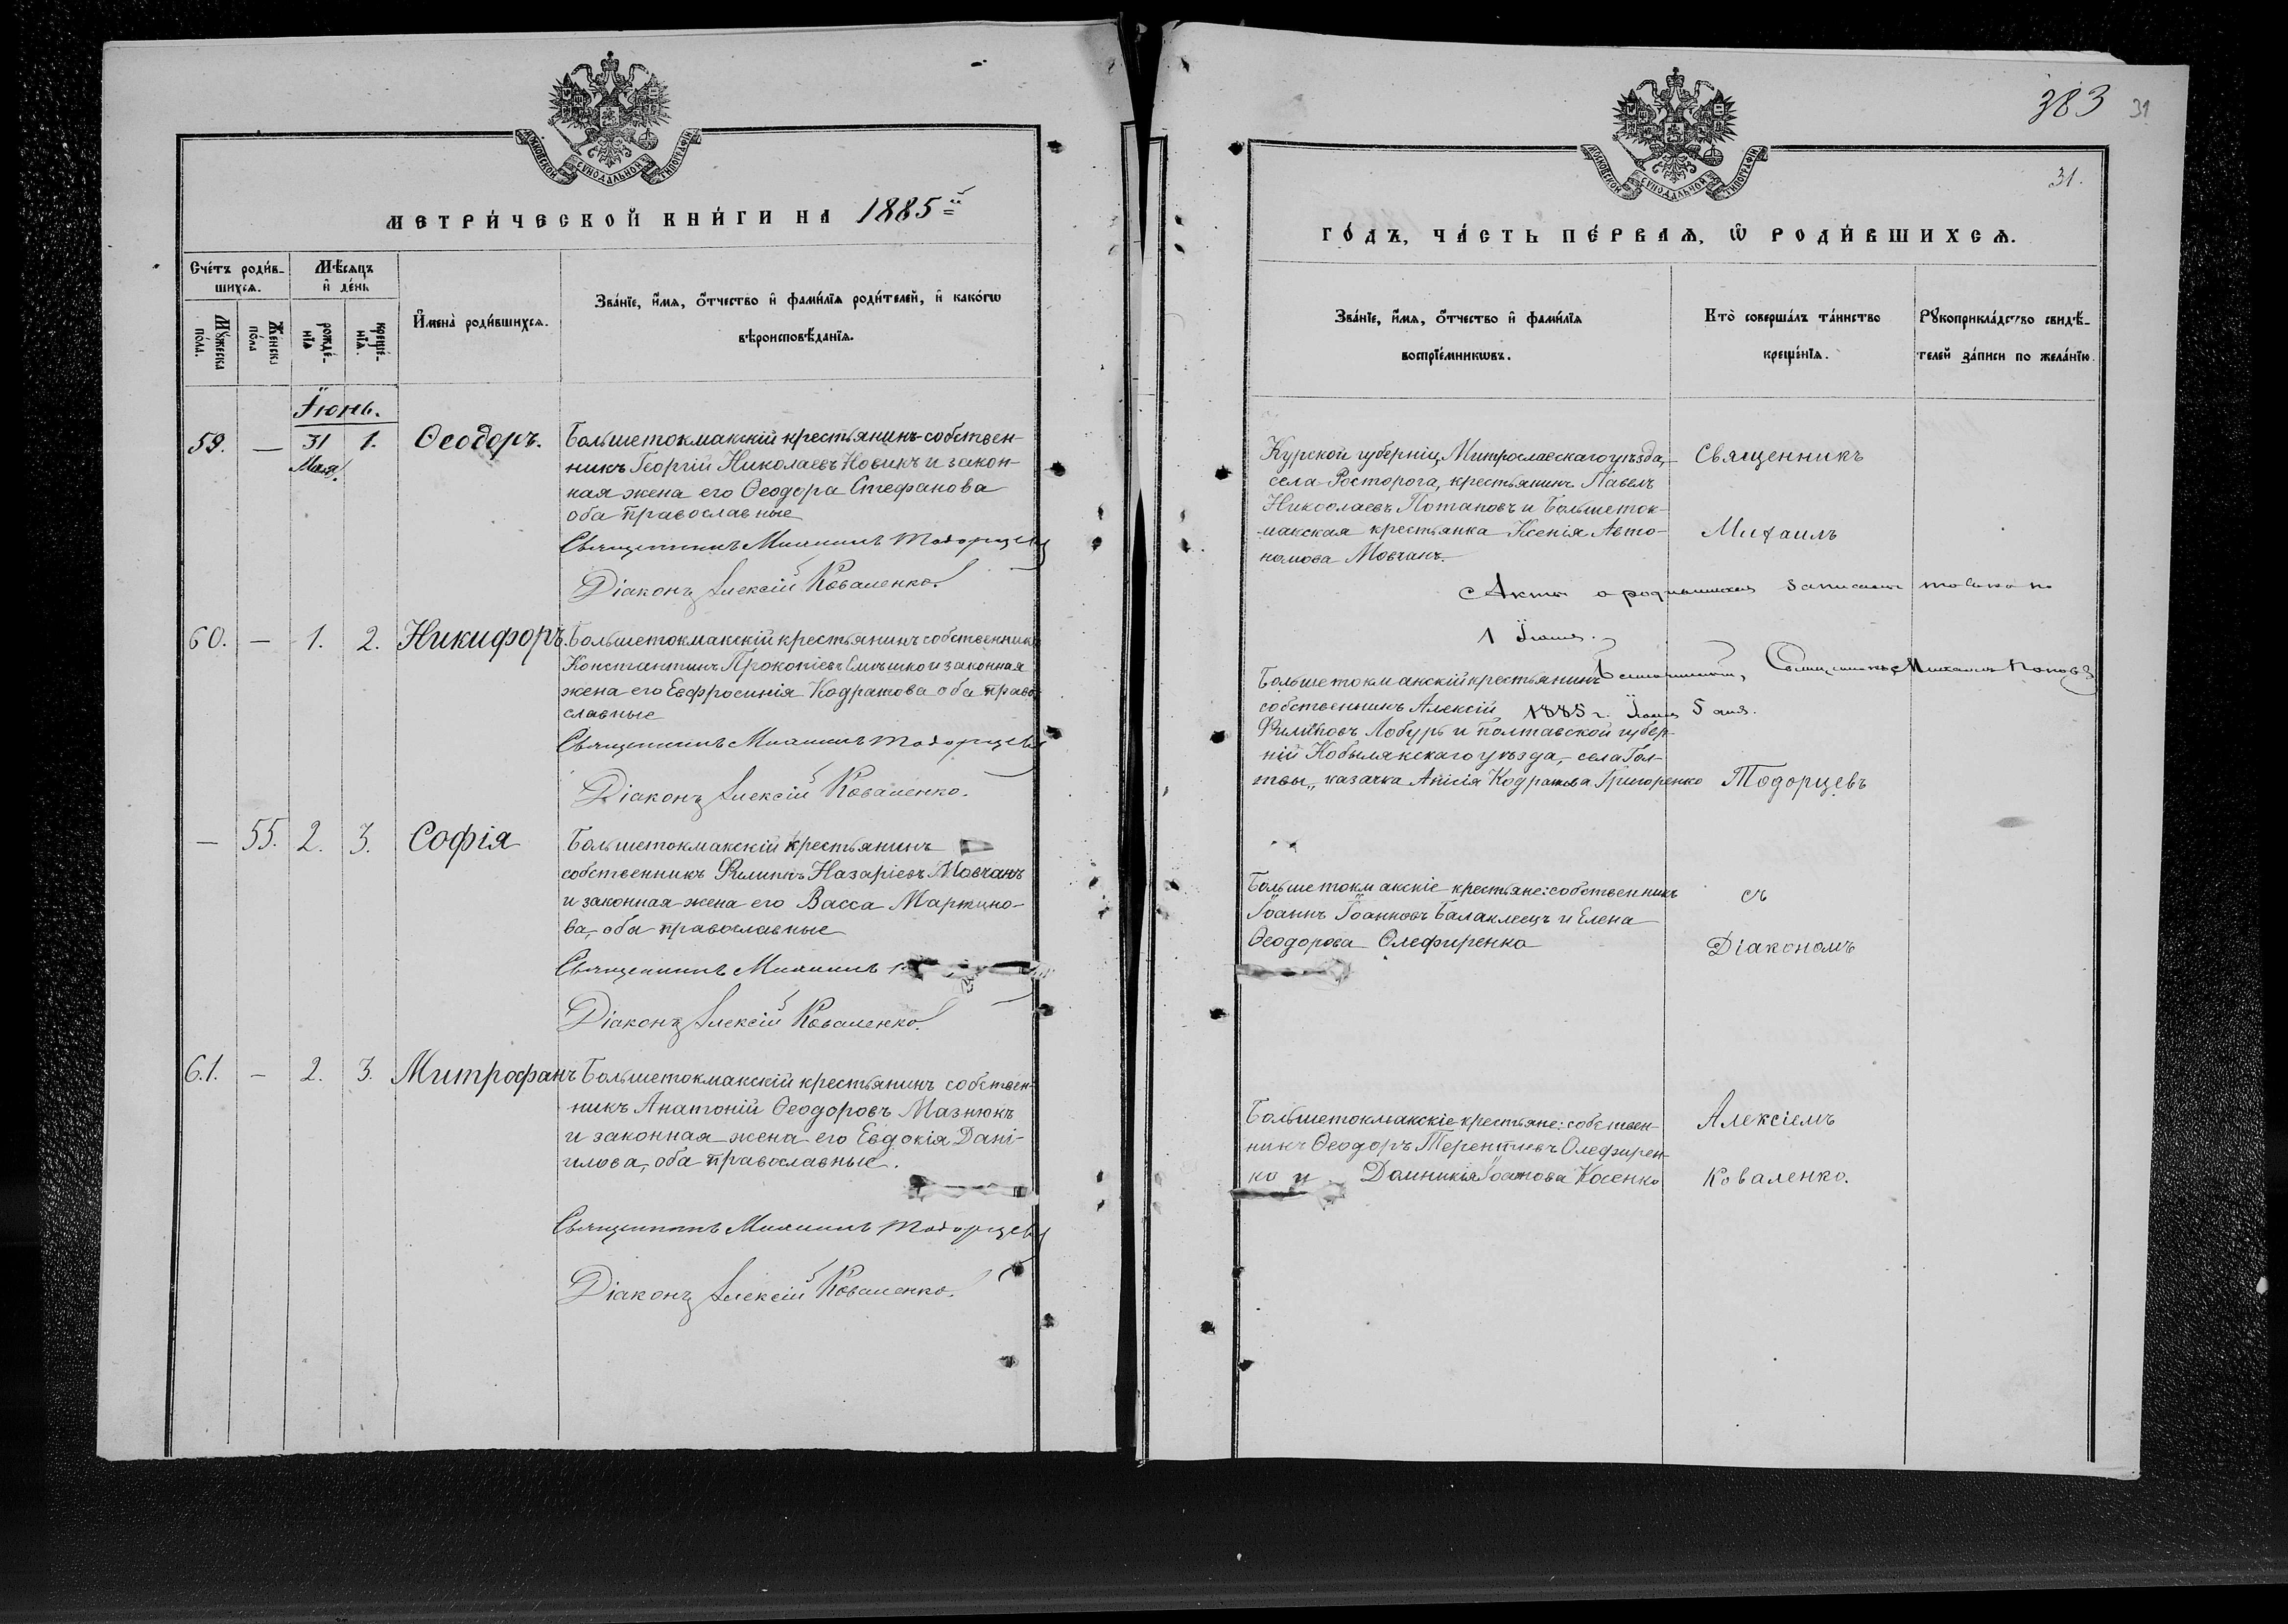 МОСКОВСКОЙ СѴНОДАЛЬНОЙ ТИПОГРАФІИ
МЕТРИ́ЧЕСКОЙ КНИ́ГИ НА 1885й
Сче́тъ роди́в-
шихсѧ.
Мѣ́сѧцъ
и҆ де́нь
Мꙋ́жеска
по́ла.
Же́нска
по́ла
рожде́-
нїѧ
креще́-
нїѧ.
И҆мена̀ роди́вшихсѧ.
Зва́нїе, и҆́мѧ, ѻ҆́тчество и҆ фами́лїѧ роди́телей, и҆ како́гѡ
вѣроисповѣ́данїѧ.
Іюнь.
59. — 31 1. Ѳеодоръ. Большетокмакскій крестьянинъ-собствен-
Мая.
никъ Георгій Николаевъ Новикъ и закон-
ная жена его Ѳеодора Стефанова
оба православные
Священникъ Михаилъ Тодорцевъ
Діаконъ Алексій Коваленко.
60. — 1. 2. Никифоръ. Большетокмакскій крестьянинъ собственникъ
Константинъ Прокопіевъ Смѣшко и законная
жена его Евфросинія Кодратова оба право-
славные
Священникъ Михаилъ Тодорцевъ
Діаконъ Алексій Коваленко.
— 55. 2. 3. Софія Большетокмакскій крестьянинъ
собственникъ Филиппъ Назаріевъ Мовчанъ
и законная жена его Васса Мартино-
ва, оба православные
Священникъ Михаилъ
Діаконъ Алексій Коваленко.
61. — 2. 3. Митрофанъ Большетокмакскій крестьянинъ собствен-
никъ Анатоній Ѳеодоровъ Мазнюкъ
и законная жена его Евдокія Дані-
илова, оба православные.
Священникъ Михаилъ Тодорцевъ
Діаконъ Алексій Коваленко.
383 31
31.
МОСКОВСКОЙ СѴНОДАЛЬНОЙ ТИПОГРАФІИ
ГО́ДЪ, ЧА́СТЬ ПЕ́РВАѦ, Ѡ҆ РОДИ́ВШИХСѦ.
Зва́нїе, и҆́мѧ, ѻ҆́тчество и҆ фами́лїѧ
воспрїе́мникѡвъ.
Кто̀ соверша́лъ та́инство
креще́нїѧ.
Рꙋкоприкла́дство свидѣ́-
телей за́писи по жела́нїю.
Курской губерніи, Митрославскаго уѣзда,
села Росторога, крестьянинъ Павелъ
Никоолаевъ Потаповъ и Большеток-
макская крестьянка Ксенія Авто-
номова Мовчанъ.
Священникъ
Михаилъ
Акты о родившихся записаны только по
1 Іюня.
Благочинный, Священникъ Михаилъ Поповъ
1885 г. Іюня 5 дня.
Большетокмакскій крестьянинъ
собственникъ Алексій
Филиповъ Лобуръ и Полтавской губер-
ній Кобылякскаго уѣзда, села Гол-
твы, казачка Анісія Кодратова Григоренко
Тодорцевъ
Большетокмакскіе крестьяне: собственникъ
Іоаннъ Іоанновъ Балаклеецъ и Елена
Ѳеодорова Олефиренко
съ
Діакономъ
Большетокмакскіе крестьяне: собствен-
никъ Ѳеодоръ Терентіевъ Олефирен-
ко и Домникія Іоаннова Косенко
Алексіемъ
Коваленко.